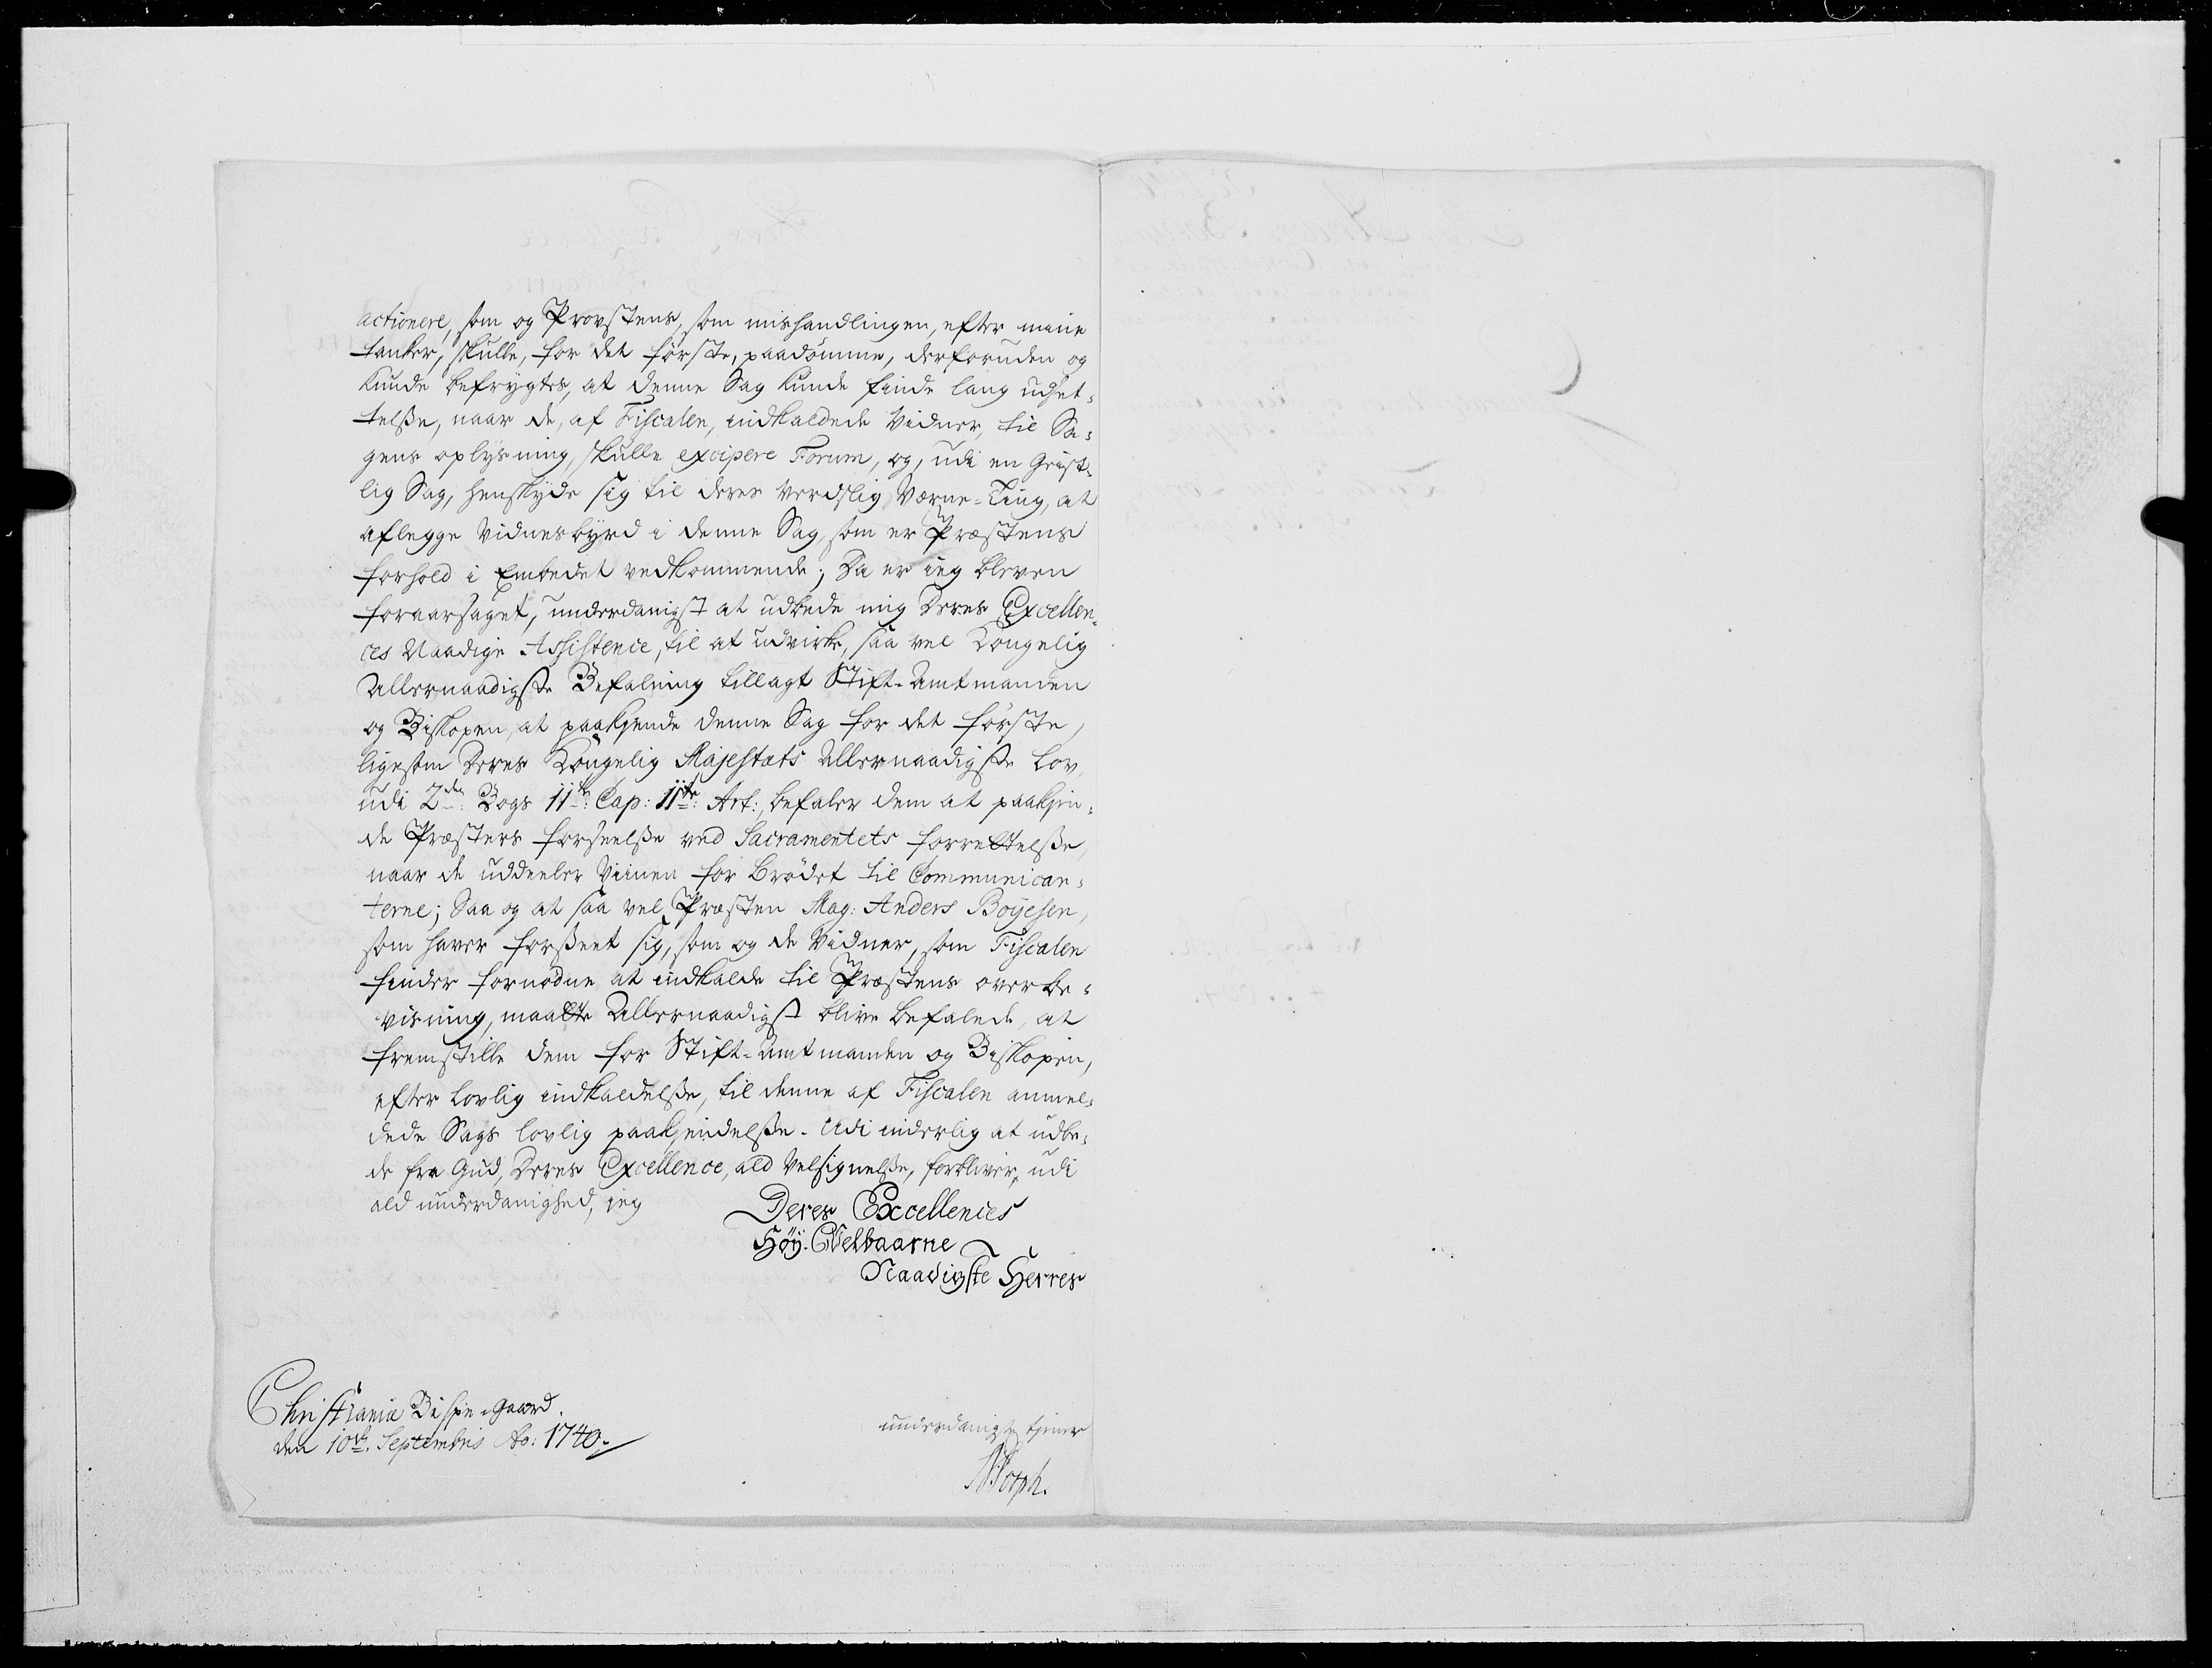 actionere, som og Provstens, som mishandlingen, efter mine
tanker, skulle, for det første, paadømme, derforuden og
kunde befrygtes, at denne Sag kunde finde lang udset-
telsse, naar de, af Fiscalen, indkaldede Vidner, til Sa-
gens oplysning, skulle excipere Forum, og, udi en Geist-
lig Sag, henskyde sig til deres Verdslig Værne-Ting, at
aflegge Vidnesbyrd i denne Sag, som er Præstens
forhold i Embedet vedkommende; Da er ieg bleven
foraarsaget, underdanigst at udbede mig Deres Excellen-
ces Naadige Assistence, til at udvirke, saa vel Kongelig
Allernaadigste Befalning tillagt Stift-Amtmanden
og Biskopen, at paakjende denne Sag for det første,
ligesom Deres Kongelig Majestæts Allernaadigste Lov,
udi 2den Bogs 11te Cap: 11te: Art:, befaler dem at paakjen-
de Præsters forseelsse ved Sacramentets forrettelsse,
naar de uddeeler Viinen for Brødet til Communican-
terne; Saa og at saa vel Præsten Mag: Anders Boyesen,
som haver forsseet sig, som og de Vidner, som Fiscalen
finder fornødne at indkalde til Præstens overbe-
visning, maatte Allernaadigst blive befalede, at
fremstille dem for Stift-Amtmanden og Biskopen,
efter lovlig indkaldelsse, til denne af Fiscalen anmel-
dede Sags lovlig paakjendelsse. Udi inderlig at udbe-
de fra Gud, Deres Excellence, ald Velsignelsse, forbliver, udi
ald underdanighed, ieg
Deres Excellences
Høy-Edelbaarne
Naadigste Herres
Christiania Bispe-Gaard.
den 10de. Septembris Ao: 1740.
underdanigste tjener
NDorph.